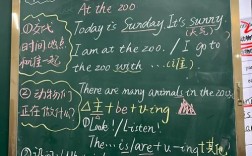 At the zoo
Today is Sunday. It's sunny.
(天气)
I am at the zoo. / I go to
the zoo with ...
① 
时间地点
② 动物们
正在做什么?
There are many animals in the zoo.
△主+be+v-ing
① Look! / Listen!
The ... is/are + v-ing